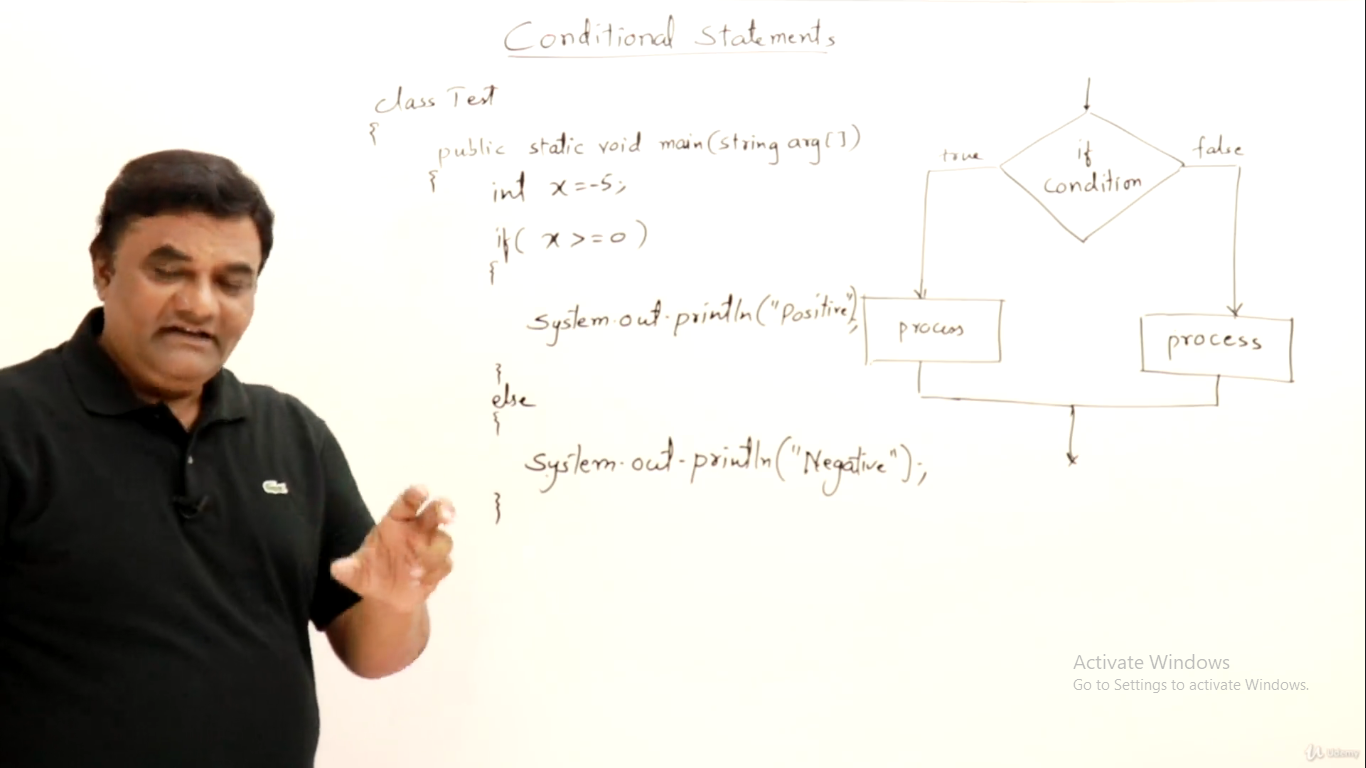 Conditional Statements
class Test
{
public static void main(string arg[])
{
int x=-5;
if( x>=0 )
{
System.out.println("Positive");
}
else
{
System.out.println("Negative");
}
if
condition
true
false
process
process
Activate Windows
Go to Settings to activate Windows.
Udemy